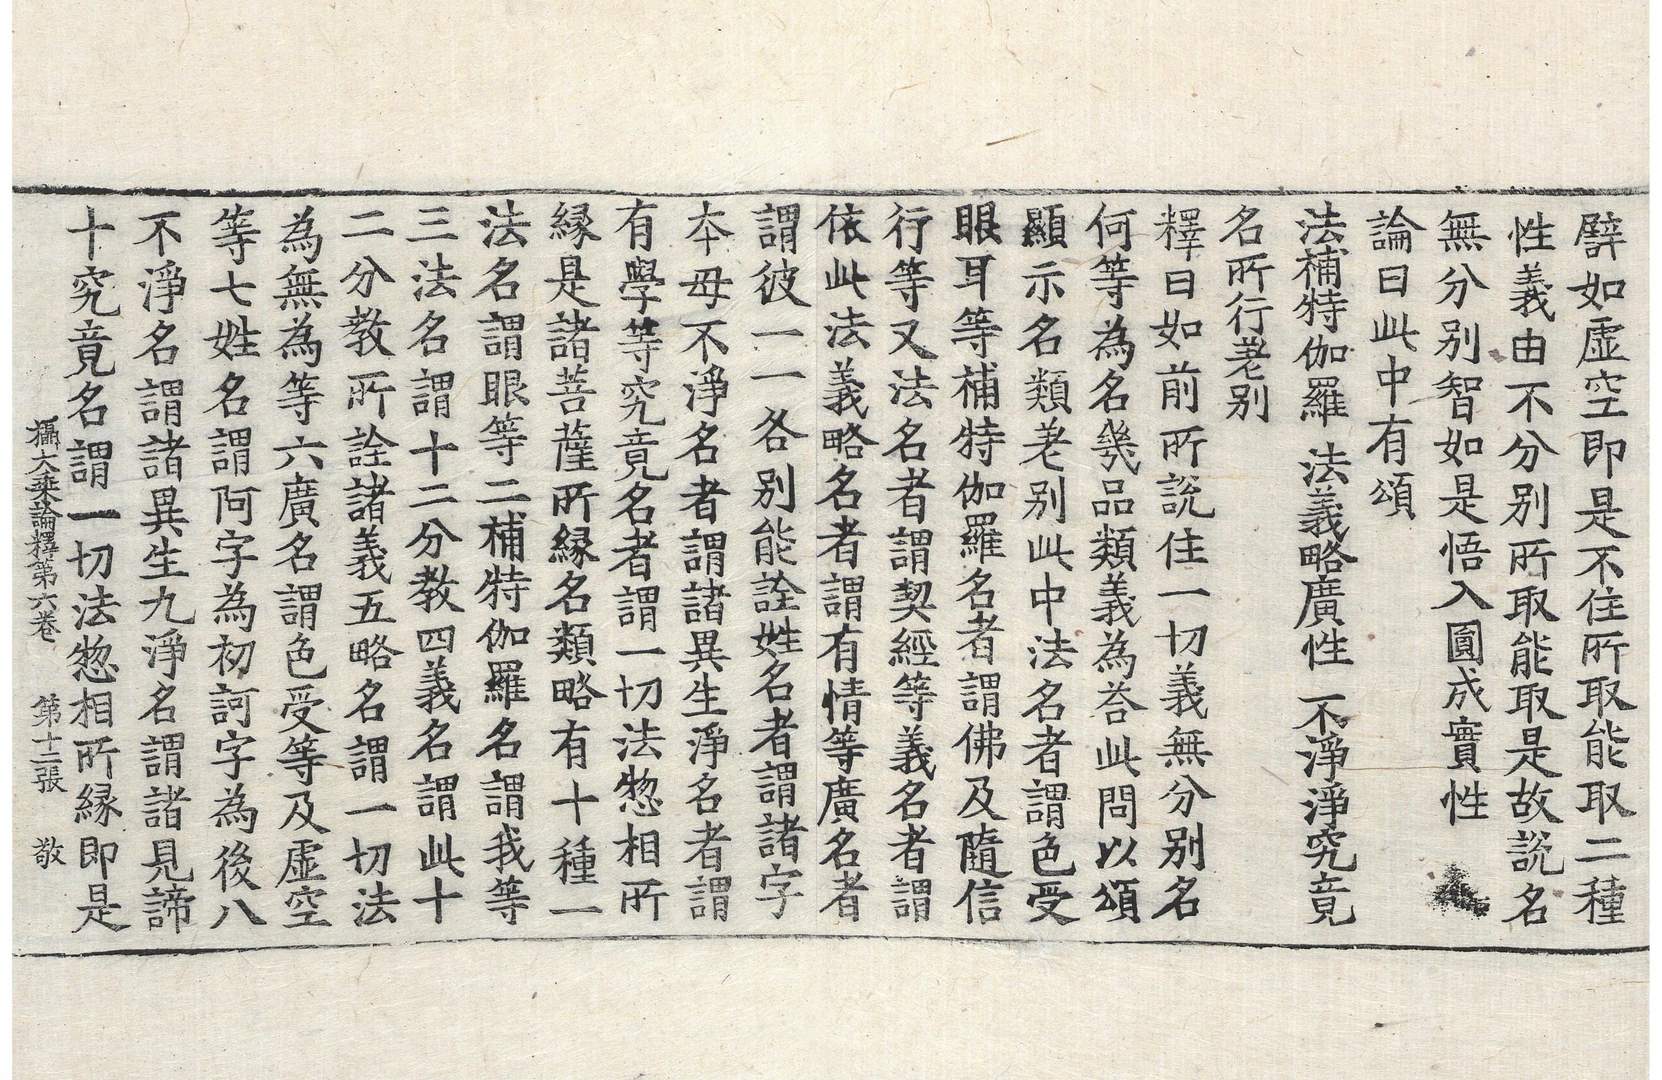 譬如虛空即是不住所取能取二種
性義由不分別所取能取是故說名
無分別智如是悟入圓成實性
論曰此中有頌
法補特伽羅 法義略廣性 不淨淨究竟
名所行差別
釋曰如前所說住一切義無分別名
何等為名幾品類義為荅此問以頌
顯示名類差別此中法名者謂色受
眼耳等補特伽羅名者謂佛及隨信
行等又法名者謂契經等義名者謂
依此法義略名者謂有情等廣名者
謂彼一一各別能詮姓名者謂諸字
本母不淨名者謂諸異生淨名者謂
有學等究竟名者謂一切法惣相所
緣是諸菩薩所緣名類略有十種一
法名謂眼等二補特伽羅名謂我等
三法名謂十二分教四義名謂此十
二分教所詮諸義五略名謂一切法
為無為等六廣名謂色受等及虛空
等七姓名謂阿字為初訶字為後八
不淨名謂諸異生九淨名謂諸見諦
十究竟名謂一切法惣相所緣即是
攝大乘論釋第六卷 第十二張 敬